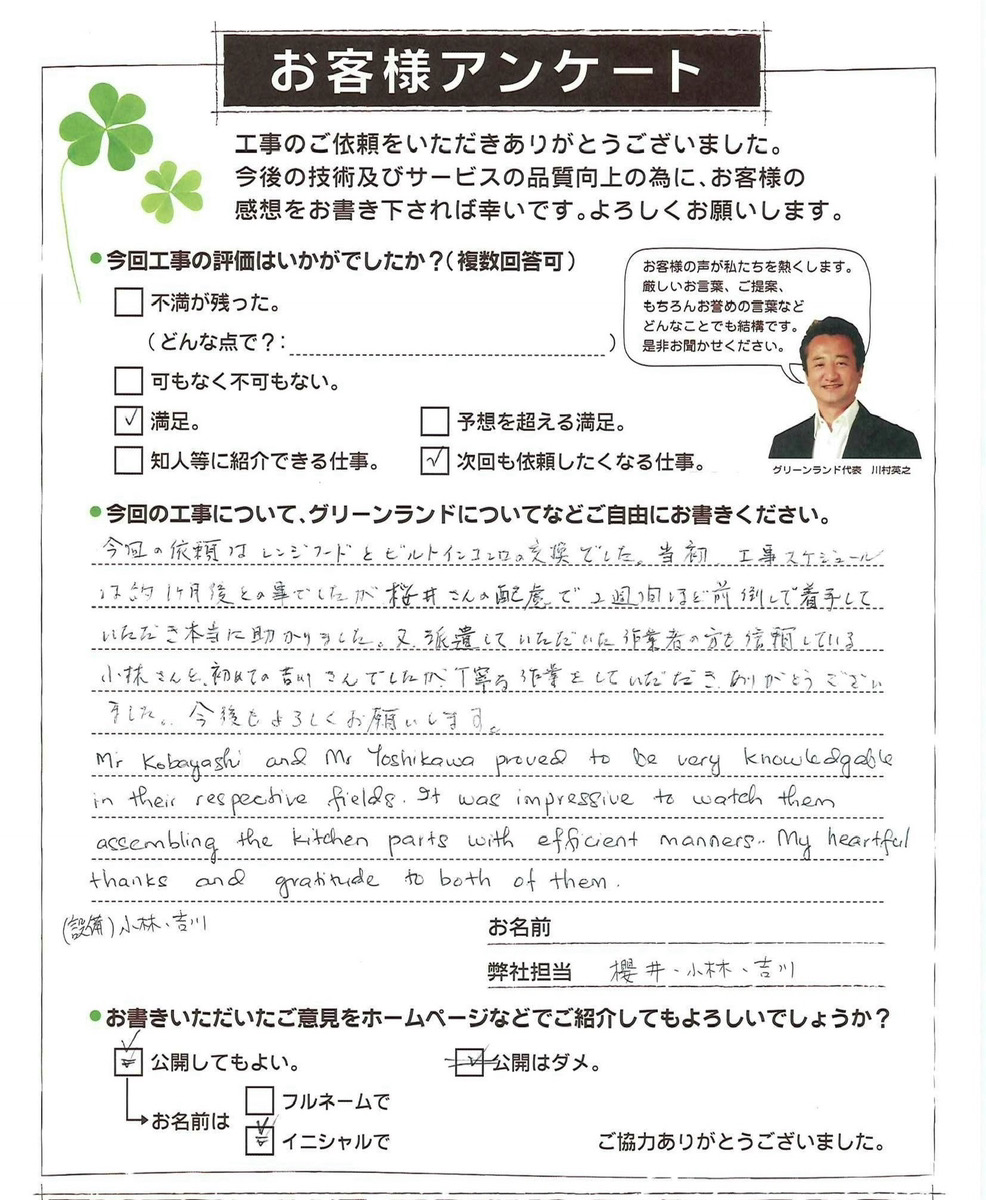 お客様アンケート
工事のご依頼をいただきありがとうございました。
今後の技術及びサービスの品質向上の為に、お客様の
感想をお書き下されば幸いです。よろしくお願いします。
●今回工事の評価はいかがでしたか？(複数回答可)
不満が残った。
(どんな点で？: )
可もなく不可もない。
満足。
予想を超える満足。
知人等に紹介できる仕事。
次回も依頼したくなる仕事。
お客様の声が私たちを熱くします。
厳しいお言葉、ご提案、
もちろんお誉めの言葉など
どんなことでも結構です。
是非お聞かせください。
グリーンランド代表 川村英之
●今回の工事について、グリーンランドについてなどご自由にお書きください。
今回の依頼はレンジフードとビルトインコンロの交換でした。当初 工事スケジュール
は約1ヶ月後との事でしたが桜井さんの配慮で2週間ほど前倒しで着手して
いただき本当に助かりました。又、派遣していただいた作業者の方も信頼している
小林さんと、初めての吉川さんでしたが、丁寧な作業をしていただき、ありがとうござい
ました。今後もよろしくお願いします。
Mr Kobayashi and Mr Yoshikawa proved to be very knowledgable
in their respective fields. It was impressive to watch them
assembling the kitchen parts with efficient manners.. My heartful
thanks and gratitude to both of them.
(設備)小林、吉川
お名前
弊社担当 櫻井、小林、吉川
●お書きいただいたご意見をホームページなどでご紹介してもよろしいでしょうか？
公開してもよい。
公開はダメ。
お名前は
フルネームで
イニシャルで
ご協力ありがとうございました。